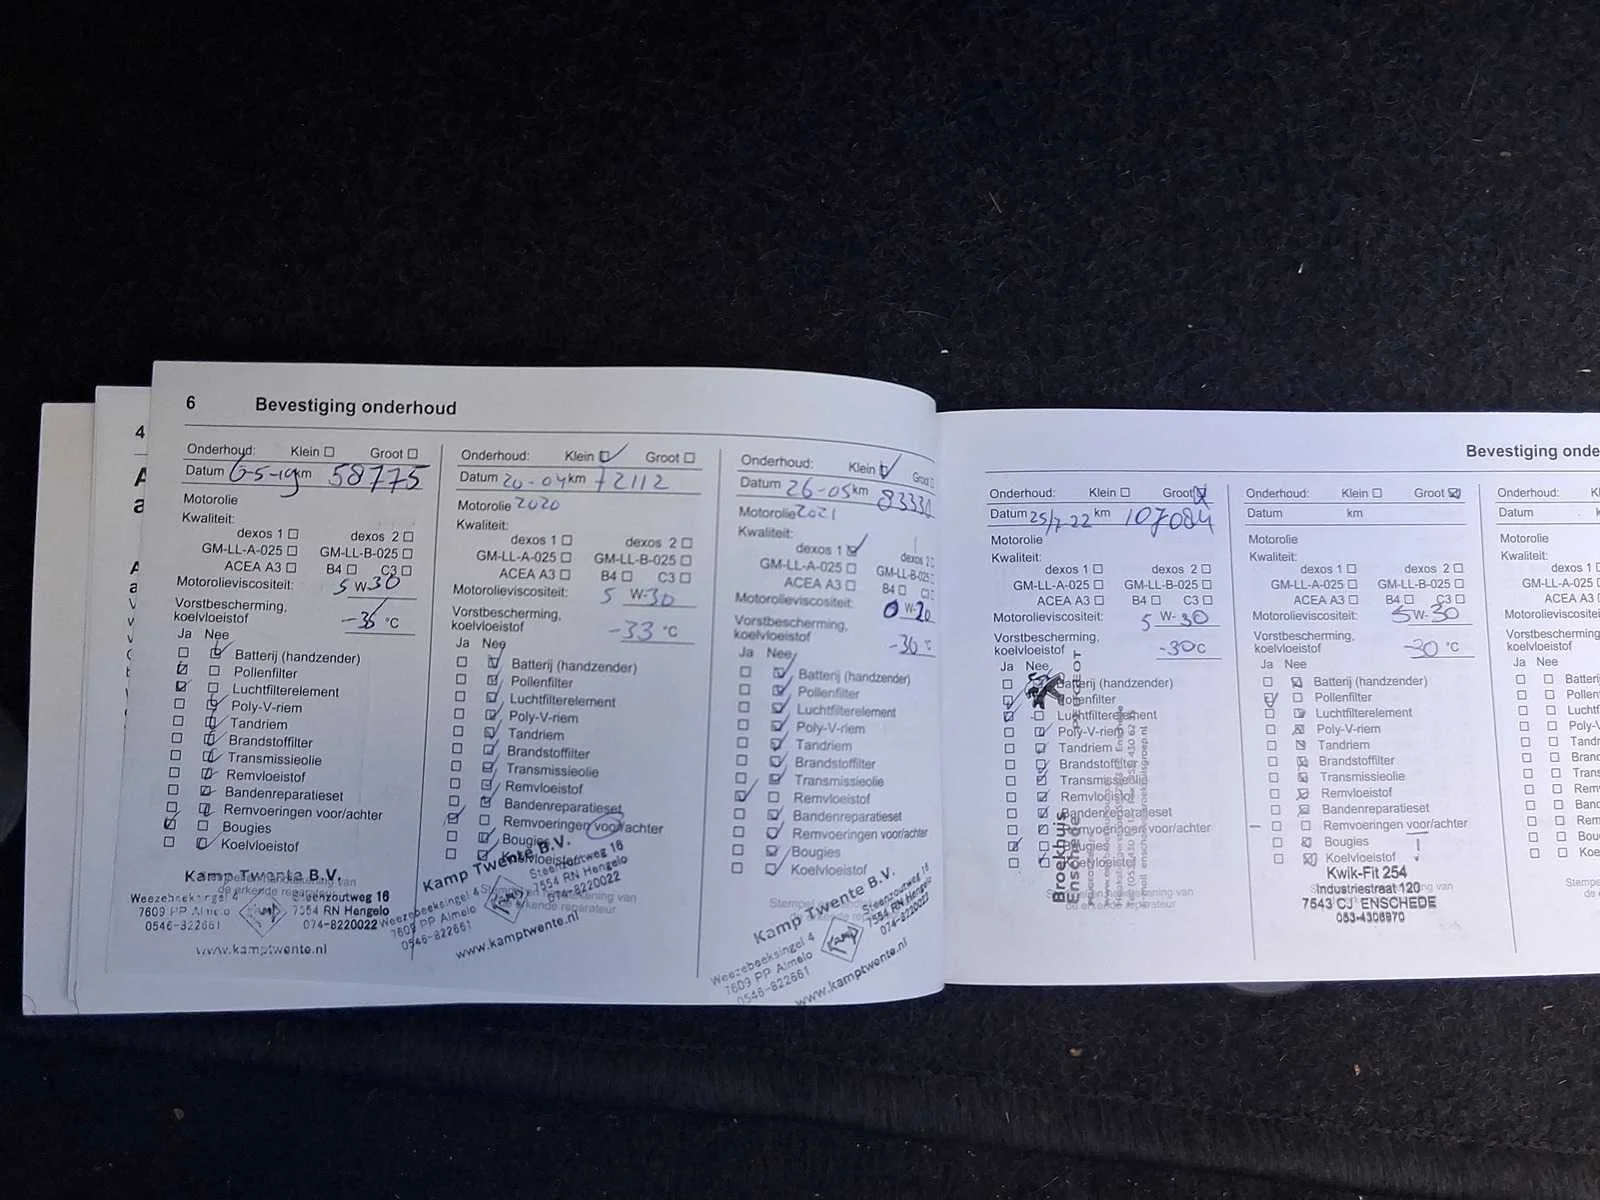 6 Bevestiging onderhoud
4
A
a
Onderhoud: Klein Groot
Datum 6-5-19 km 58775
Motorolie
Kwaliteit:
dexos 1 dexos 2
GM-LL-A-025 GM-LL-B-025
ACEA A3 B4 C3
Motorolieviscositeit: 5 W-30
Vorstbescherming,
koelvloeistof -35 °C
Ja Nee
Batterij (handzender)
Pollenfilter
Luchtfilterelement
Poly-V-riem
Tandriem
Brandstoffilter
Transmissieolie
Remvloeistof
Bandenreparatieset
Remvoeringen voor/achter
Bougies
Koelvloeistof
Kamp Twente B.V.
Weezebeeksingel 4 Steenzoutweg 16
7609 PP Almelo 7554 RN Hengelo
0546-822661 074-8220022
www.kamptwente.nl
Onderhoud: Klein Groot
Datum 20-04 km 72112
Motorolie 2020
Kwaliteit:
dexos 1 dexos 2
GM-LL-A-025 GM-LL-B-025
ACEA A3 B4 C3
Motorolieviscositeit: 5 W-30
Vorstbescherming,
koelvloeistof -33 °C
Ja Nee
Batterij (handzender)
Pollenfilter
Luchtfilterelement
Poly-V-riem
Tandriem
Brandstoffilter
Transmissieolie
Remvloeistof
Bandenreparatieset
Remvoeringen voor/achter
Bougies
Koelvloeistof
Kamp Twente B.V.
Weezebeeksingel 4 Steenzoutweg 16
7609 PP Almelo 7554 RN Hengelo
0546-822661 074-8220022
www.kamptwente.nl
Onderhoud: Klein Groot
Datum 26-05 km
Motorolie 2021
Kwaliteit:
dexos 1 dexos 2
GM-LL-A-025 GM-LL-B-025
ACEA A3 B4 C3
Motorolieviscositeit: 0 W-20
Vorstbescherming,
koelvloeistof °C
Ja Nee
Batterij (handzender)
Pollenfilter
Luchtfilterelement
Poly-V-riem
Tandriem
Brandstoffilter
Transmissieolie
Remvloeistof
Bandenreparatieset
Remvoeringen voor/achter
Bougies
Koelvloeistof
Kamp Twente B.V.
Weezebeeksingel 4 Steenzoutweg 16
7609 PP Almelo 7554 RN Hengelo
0546-822661 074-8220022
www.kamptwente.nl
Bevestiging onde
Onderhoud: Klein Groot
Datum 25/7-22 km 107084
Motorolie
Kwaliteit:
dexos 1 dexos 2
GM-LL-A-025 GM-LL-B-025
ACEA A3 B4 C3
Motorolieviscositeit: 5 W-30
Vorstbescherming,
koelvloeistof -30 °C
Ja Nee
Batterij (handzender)
Pollenfilter
Luchtfilterelement
Poly-V-riem
Tandriem
Brandstoffilter
Transmissieolie
Remvloeistof
Bandenreparatieset
Remvoeringen voor/achter
Bougies
Koelvloeistof
Broekhuis
Enschede
PEUGEOT
Onderhoud: Klein Groot
Datum km
Motorolie
Kwaliteit:
dexos 1 dexos 2
GM-LL-A-025 GM-LL-B-025
ACEA A3 B4 C3
Motorolieviscositeit: 5 W-30
Vorstbescherming,
koelvloeistof -30 °C
Ja Nee
Batterij (handzender)
Pollenfilter
Luchtfilterelement
Poly-V-riem
Tandriem
Brandstoffilter
Transmissieolie
Remvloeistof
Bandenreparatieset
Remvoeringen voor/achter
Bougies
Koelvloeistof !
Kwik-Fit 254
Industriestraat 120
7543 CJ ENSCHEDE
053-4306970
Onderhoud: Kl
Datum k
Motorolie
Kwaliteit:
dexos 1
GM-LL-A-025
ACEA A3
Motorolieviscositei
Vorstbescherming
koelvloeistof
Ja Nee
Batteri
Pollenf
Luchtf
Poly-V
Tandr
Brand
Trans
Remv
Band
Rem
Bou
Koe
Stempe
de